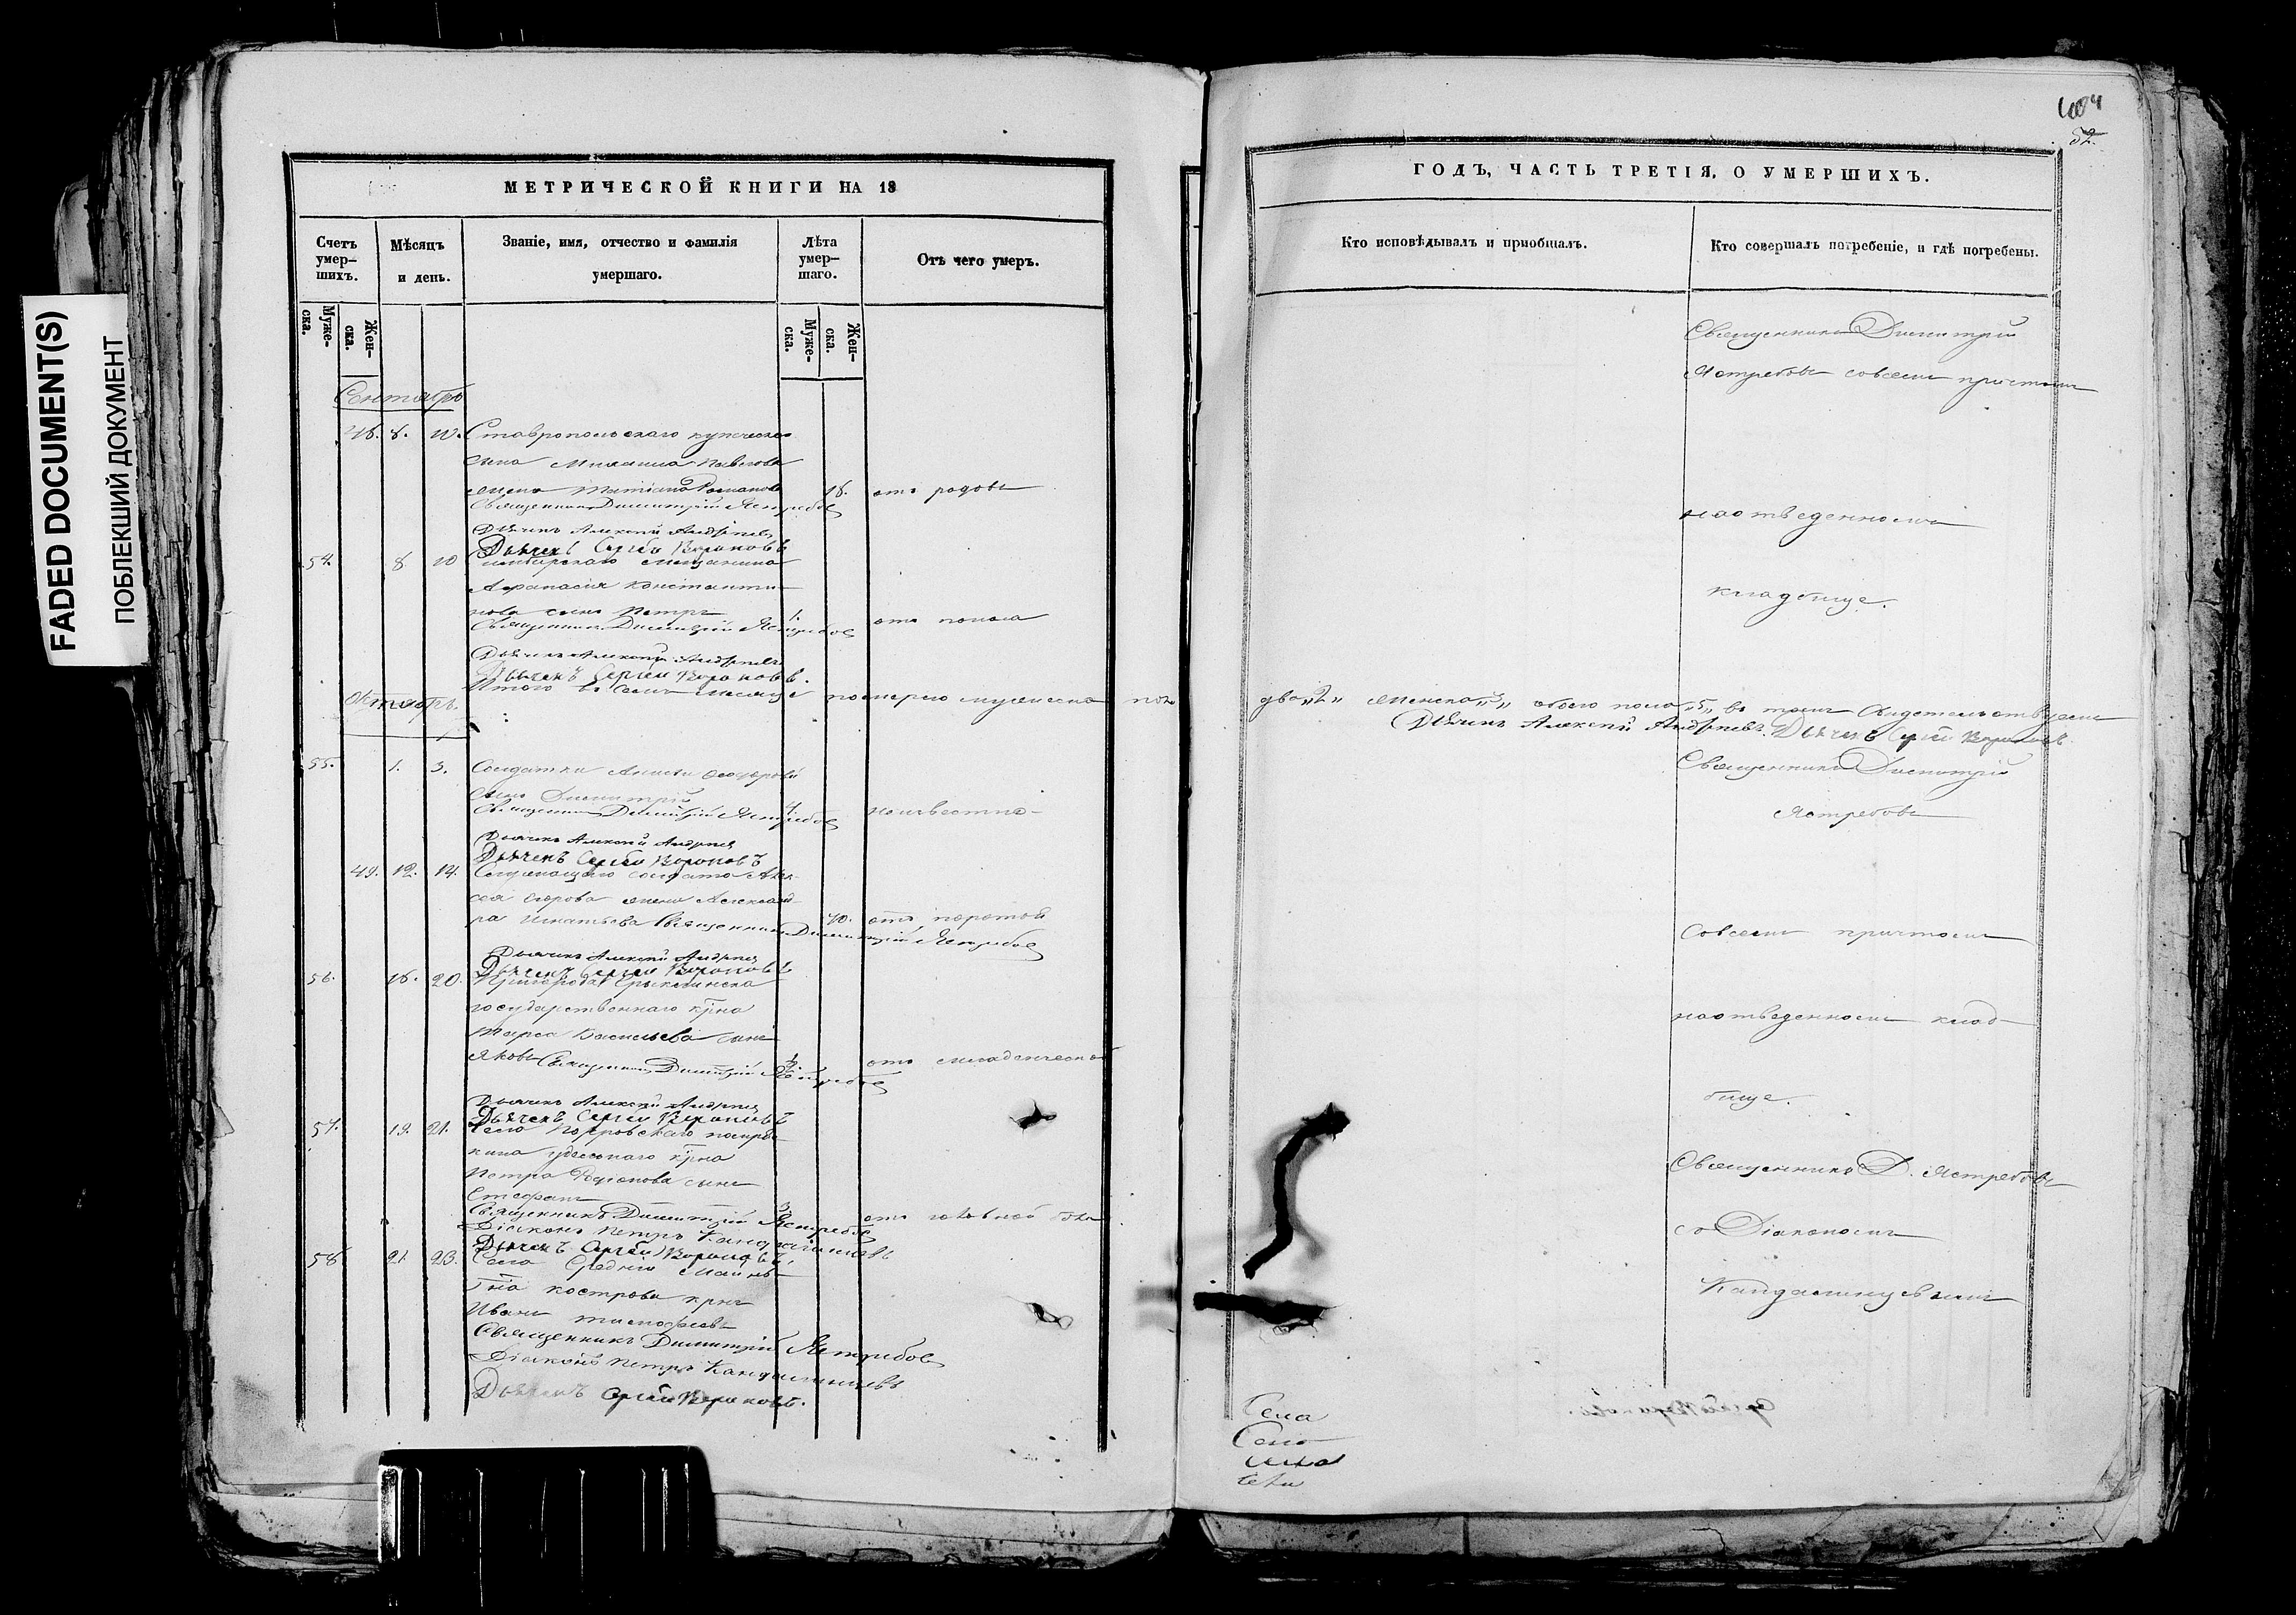 FADED DOCUMENT(S)
ПОБЛЕКШИЙ ДОКУМЕНТ
МЕТРИЧЕСКОЙ КНИГИ НА 18
Счетъ умер–шихъ.
Мѣсяцъ и день.
Званіе, имя, отчество и фамилія умершаго.
Лѣта умер–шаго.
Отъ чего умеръ.
Муже–ска.
Жен–ска.
Муже–ска.
Жен–ска.
Сентябрь
8. 10. Ставропольскаго купческа
сына Михаила Павлова
жена Татіана Романова 18. отъ родовъ
Священникъ Димитрій Ястребовъ
Дьячекъ Алексѣй Андреевъ
Дьячекъ Сергѣй Вороновъ
54. 8 10 Симбирскаго мещанина
Афанасія Константи–
нова сынъ Петръ 1. отъ поноса
Священникъ Димитрій Ястребовъ
Дьячекъ Алексѣй Андреевъ
Дьячекъ Сергѣй Вороновъ.
Октябрь. Итого въ семъ месяце померло мужеска пола
55. 1. 3. Солдатки
сынъ Димитрій 4. неизвестно
Священникъ Димитрій Ястребовъ
Дьячекъ Алексѣй Андреевъ
Дьячекъ Сергѣй Вороновъ
49. 12. 14. Служащаго солдата Алек–
сея Егорова жена Александ–
ра Игнатьева 40. отъ
Священникъ Димитрій Ястребовъ
Дьячекъ Алексѣй Андреевъ
Дьячекъ Сергѣй Вороновъ
56. 18. 20.
государственнаго кр–на
Васильева сынъ
Яковъ отъ младенческой
Священникъ Димитрій Ястребовъ
Дьячекъ Алексѣй Андреевъ
Дьячекъ Сергѣй Вороновъ
57. 19. 21. Села Покровскаго
удельнаго кр–на
Петра Родіонова сынъ
Стефанъ 3 отъ головной боли
Священникъ Димитрій Ястребовъ
Діаконъ Петръ Кандалинцевъ
Дьячекъ Сергѣй Вороновъ.
58 21. 23. Села Средняго
кострова кр–нъ
Иванъ Тимофеевъ
Священникъ Димитрій Ястребовъ
Діаконъ Петръ Кандалинцевъ
Дьячекъ Сергѣй Вороновъ.
604
52.
ГОДЪ, ЧАСТЬ ТРЕТІЯ, О УМЕРШИХЪ.
Кто исповѣдывалъ и пріобщалъ.
Кто совершалъ погребеніе, и гдѣ погребены.
Священникъ Димитрій
Ястребовъ совсемъ причтомъ
наотведенномъ
кладбище.
два „2„ женска „3„ обоего пола „5„ въ томъ свидетельствуемъ
Дьячекъ Алексѣй Андреевъ. Дьячекъ Сергѣй Вороновъ.
Священникъ Димитрій
Ястребовъ
Совсемъ причтомъ
наотведенномъ клад–
бище.
Священникъ Д. Ястребовъ
со Діакономъ
Кандалинцевымъ
Села
Село